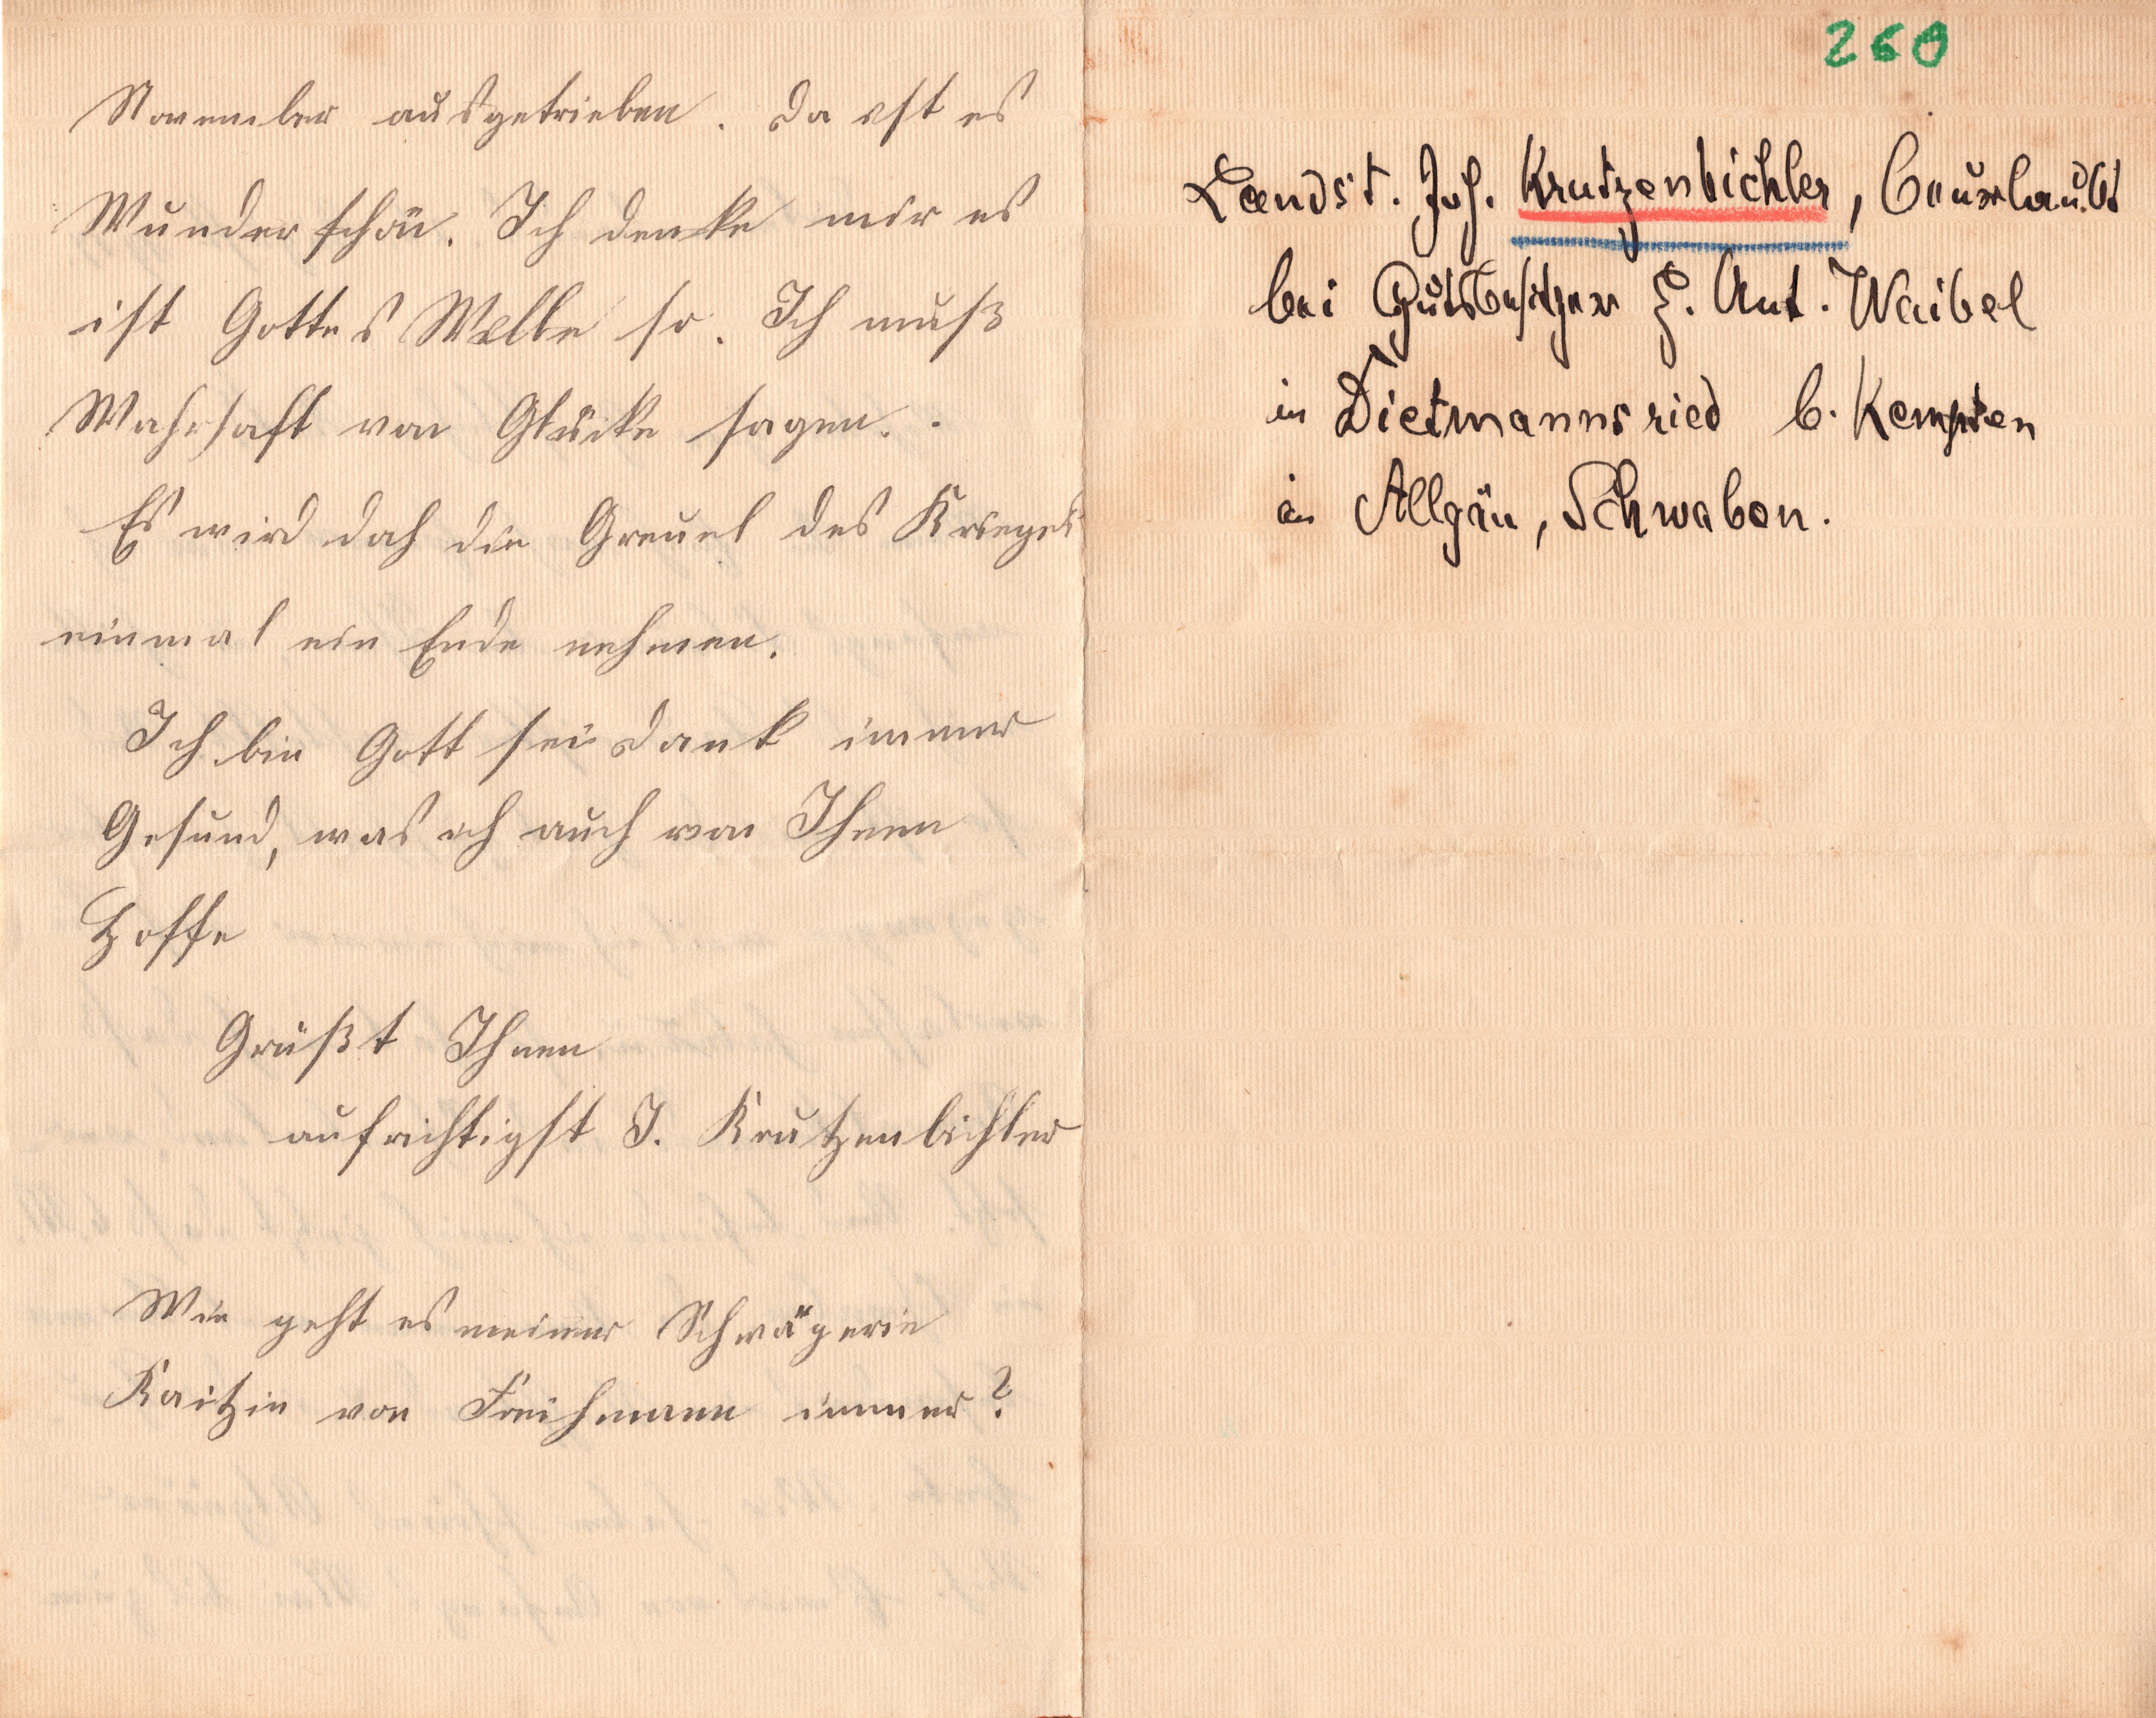 November ausgetrieben. Da ist es
Wunderschön. Ich denke mir es
ist Gottes Wille so. Ich muß
Wahrhaft von Glücke sagen.
Es wird doch die Greuel des Krieges
einmal ein Ende nehmen.
Ich bin Gott sei Dank immer
Gesund, was ich auch von Ihnen
Hoffe
Grüßt Ihnen
aufrichtigst J. Krutzenbichler
Wie geht es meiner Schwägerin
von immer?
260
Landst. Joh. Krutzenbichler, beurlaubt
bei Gutsbesitzer H. Ant. Waibel
in Dietmannsried b. Kempten
in Allgäu, Schwaben.